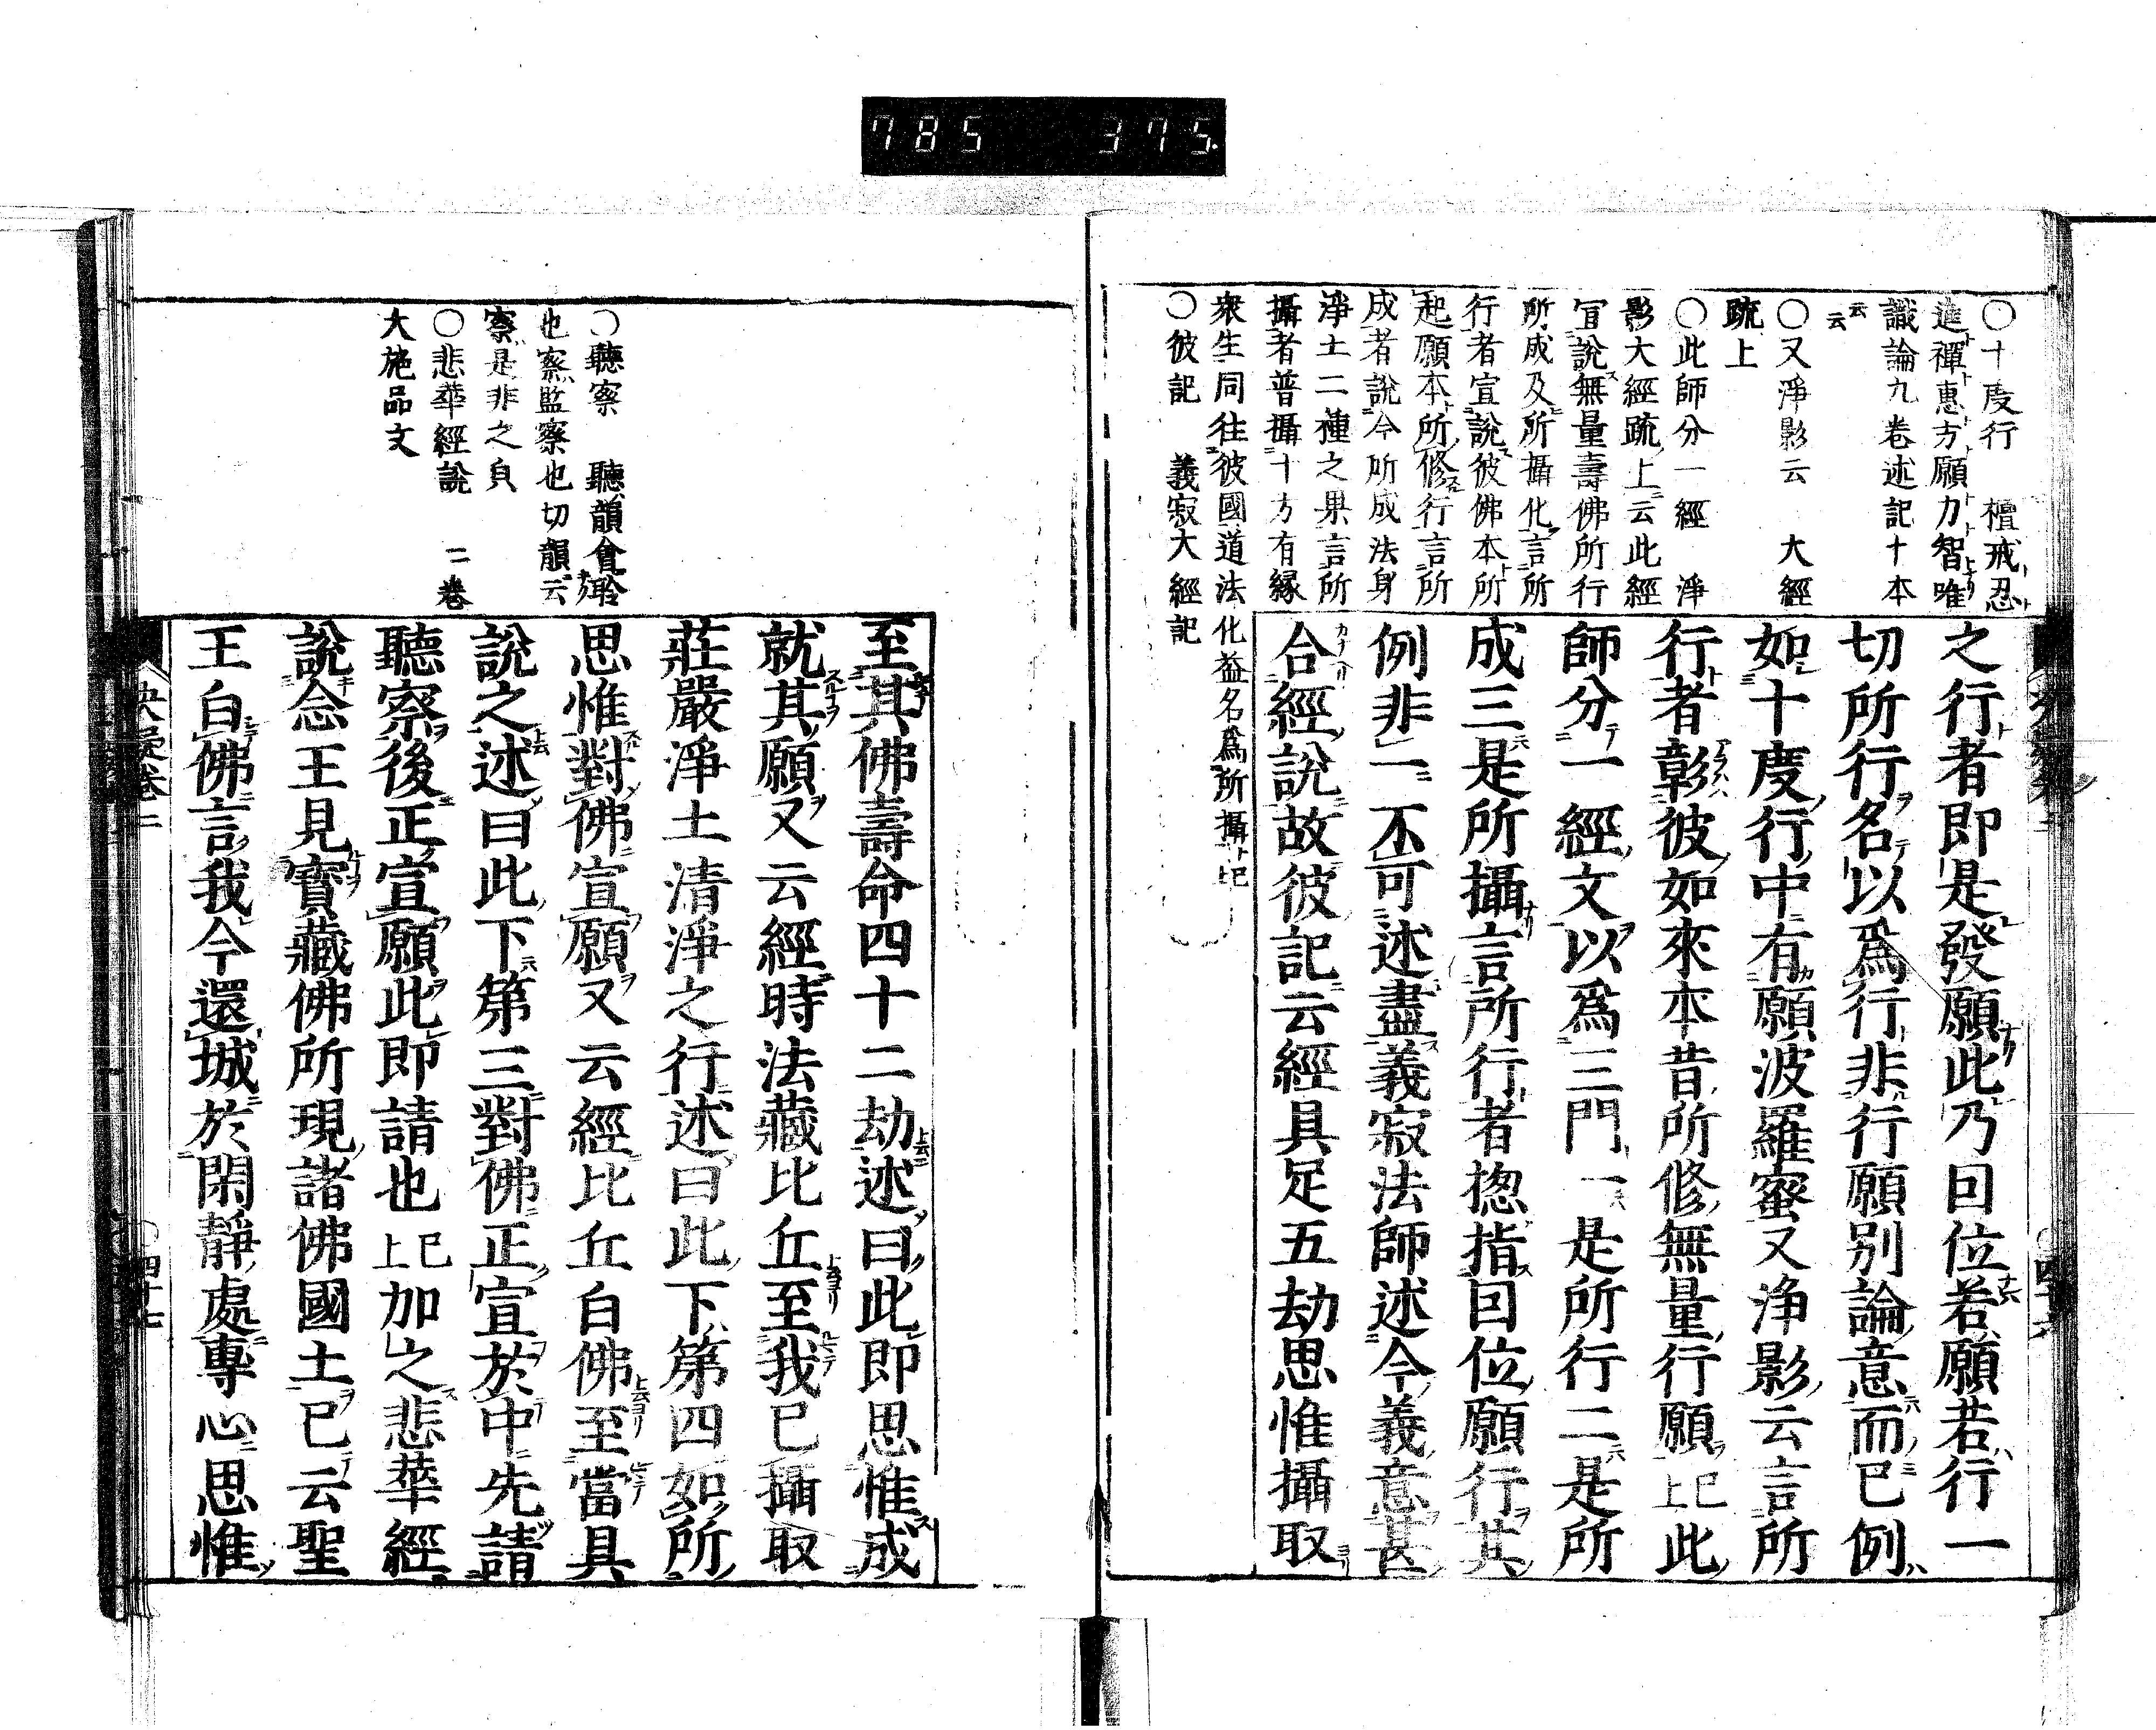 785 375
〇十度行 檀戒忍
進禪惠方願力智唯
識論九卷述記十本
云云
〇又淨影云 大經
疏上
〇此師分一經 淨
影大經疏上云此經
宣說無量壽佛所行
所成及所攝化言所
行者宣說彼佛本所
起願本所修行言所
成者說今所成法身
淨土二種之果言所
攝者普攝十方有緣
衆生同往彼國道法化益名爲所攝已上
〇彼記 義寂大經記
之行者即是發願此乃因位若願若行一
切所行名以爲行非行願別論意而已例
如十度行中有願波羅蜜又淨影云言所
行者彰彼如來本昔所修無量行願已上此
師分一經文以爲三門一是所行二是所
成三是所攝言所行者揔指因位願行其
例非一不可述盡義寂法師述今義意甚
合經說故彼記云經具足五劫思惟攝取
〇聽察 聽韻會聆
也察監察也切韻云
察是非之皃
〇悲華經說 二卷
大施品文
至其佛壽命四十二劫述曰此即思惟成
就其願又云經時法藏比丘至我已攝取
莊嚴淨土清淨之行述曰此下第四如所
思惟對佛宣願又云經比丘白佛至當具
說之述曰此下第三對佛正宣於中先請
聽察後正宣願此即請也已上加之悲華經
說念王見寶藏佛所現諸佛國土已云聖
王白佛言我今還城於閑靜處專心思惟
四十七